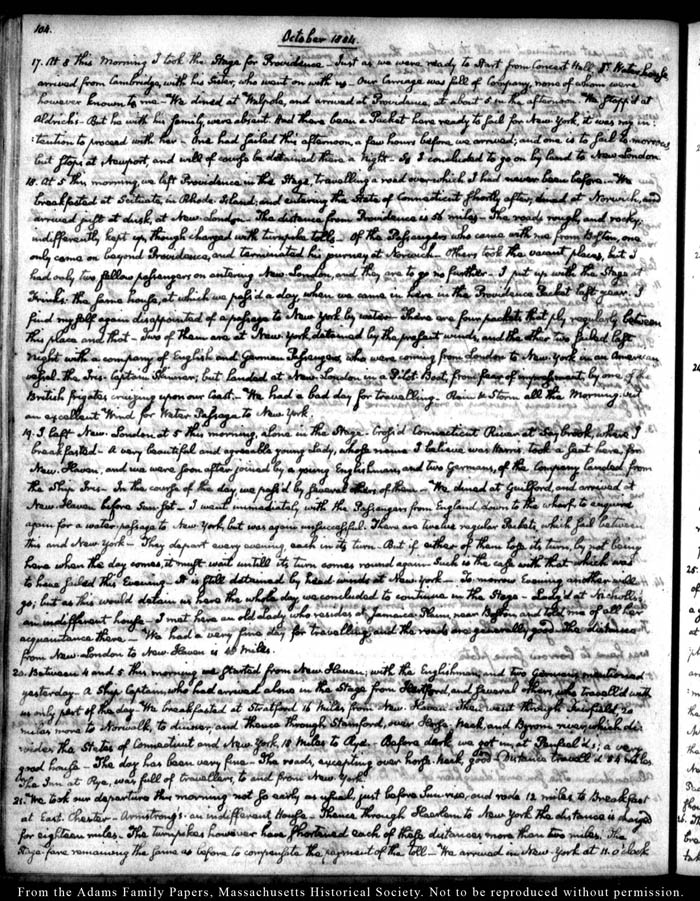 104.
October 1804.
17. At 8 this Morning I took the Stage for Providence— Just as we were ready to start from Concert Hall, Dr. Waterhouse
arrived from Cambridge, with his Sister, who went on with us— Our Carriage was full of Company, none of whom were
however known to me— We dined at Walpole, and arrived at Providence, at about 5 in the afternoon— We stopp'd at
Aldrich's— But he with his family, were absent. Had there been a Packet here ready to sail for New York it was my in:
:tention to proceed with her— One had sailed this afternoon, a few hours before we arrived; and one is to sail to-morrow
but stops at Newport, and will of course be detained there a Night— So I concluded to go on by land to New London
18. At 5 this morning we left Providence in the Stage, travelling a road over which I had never been before— We
breakfasted at Scituate, in Rhode Island; and entering the State of Connecticut shortly after, dined at Norwich, and
arrived just at dusk, at New-London— The distance from Providence is 56 miles— The roads rough, and rocky,
indifferently kept up, though charged with turnpike tolls— Of the Passengers who came with me from Boston, one
only came on beyond Providence, and terminated his journey at Norwich— Others took the vacant places, but I
had only two fellow passengers on entering New London, and they are to go no further— I put up with the Stage at
the same house, at which we pass'd a day, when we came in here in the Providence Packet last year. I
find myself again disappointed of a passage to New York by water— There are four packets that ply regularly between
this place and that— Two of them are at New York detained by the present winds, and the other two sailed last
Night with a company of English and German Passengers, who were coming from London to New York in an American
vessel— the Iris— Captain but landed at New London in a Pilot Boat, from fear of impressment, by one of the
British frigates cruizing upon our Coast— We had a bad day for travelling— Rain & Storm all the Morning, but
an excellent Wind for Water Passage to New York.
19. I left New-London at 5 this morning, alone in the Stage— Cross'd Connecticut River at Saybrook, where I
breakfasted— A very beautiful and agreeable young Lady, whose name I believe was Harris, took a seat here, for
New Haven, and we were soon after joined by a young Englishman, and two Germans, of the Company landed from
the Ship Iris— In the course of the day, we pass'd by several others of them— We dined at Guilford, and arrived at
New Haven before Sun-set— I went immediately, with the Passengers from England, down to the wharf, to enquire
again for a water-passage to New York, but was again unsuccessful. There are twelve regular Packets, which sail between
this and New York— They depart every evening each in its turn— But if either of them lose its turn, by not being
here when the day comes, it must wait untill its turn comes round again— Such is the case with that which was
to have sailed this Evening— It is still detained by head winds at New York— To morrow Evening another will
go; but as this would detain us here the whole day, we concluded to continue in the Stage— Lodg'd at
an indifferent house— I met here an old Lady who resides at Jamaica Plain, near Boston, and told me of all her
acquaintance there— We had a very fine day for travelling, and the roads are generally good— The distance
from New London to New Haven is miles.
20. Between 4 and 5 this morning we started from New Haven; with the Englishman, and two Germans, mentioned
yesterday— A Ship Captain, who had arrived alone in the Stage from Hartford, and several others, who travell'd with
us only part of the day— We breakfasted at Stratford 16 Miles from New Haven— Then went through Fairfield 20
miles more to Norwalk, to dinner, and thence through Stamford, over Horse Neck, and Byram river, which di:
:vides the States of Connecticut and New York, 18 Miles to Rye— Before dark we got in, at a very
good house— The day has been very fine— The roads, excepting over horse-neck, good— Distance travell'd 54 miles
The Inn at Rye, was full of travellers, to and from New York.
21. We took our departure this morning not so early as usual; just before Sun-rise, and rode 12 miles to Breakfast
at East-Chester— Armstrong's— an indifferent House— Thence through Haerlem to New York the distance is charged
for eighteen miles— The turnpikes however have shortened each of these distances more than two miles. The
Stage-fare remaining the same as before to compensate the payment of the toll— We arrived in New York at 11. o'clock
From the Adams Family Papers, Massachusetts Historical Society. Not to be reproduced without permission.